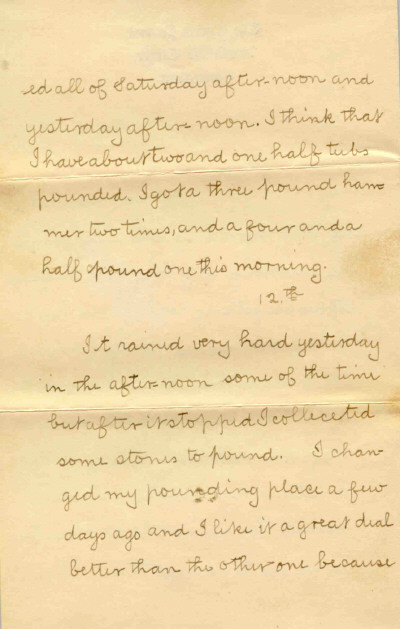 ed all of Saturday after-noon and
yesterday after-noon. I think that
I have about two and one half tubs
pounded. I got a three pound ham-
mer two times, and a four and a
half pound one this morning.
12.th
It rained very hard yesterday
in the after-noon some of the time
but after it stopped I colleceted
some stones to pound. I chan-
ged my pounding place a few
days ago and I like it a great deal
better than the other one because